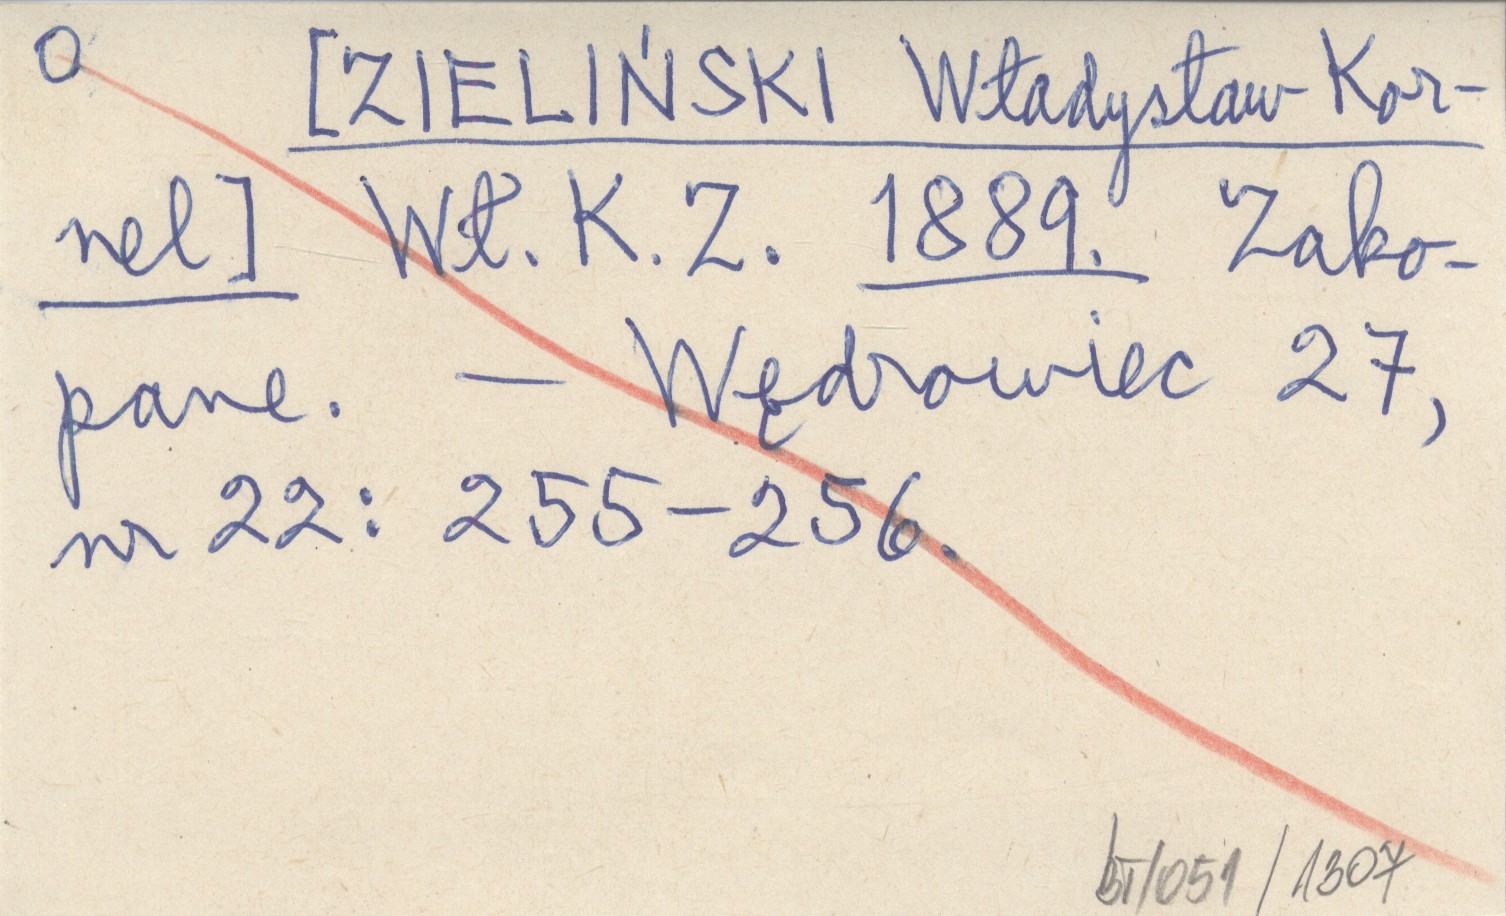 O [ZIELIŃSKI Władysław Kor-
nel] Wł. K. Z. 1889. Zako-
pane. — Wędrowiec 27,
nr 22: 255-256.
BT/051/1307